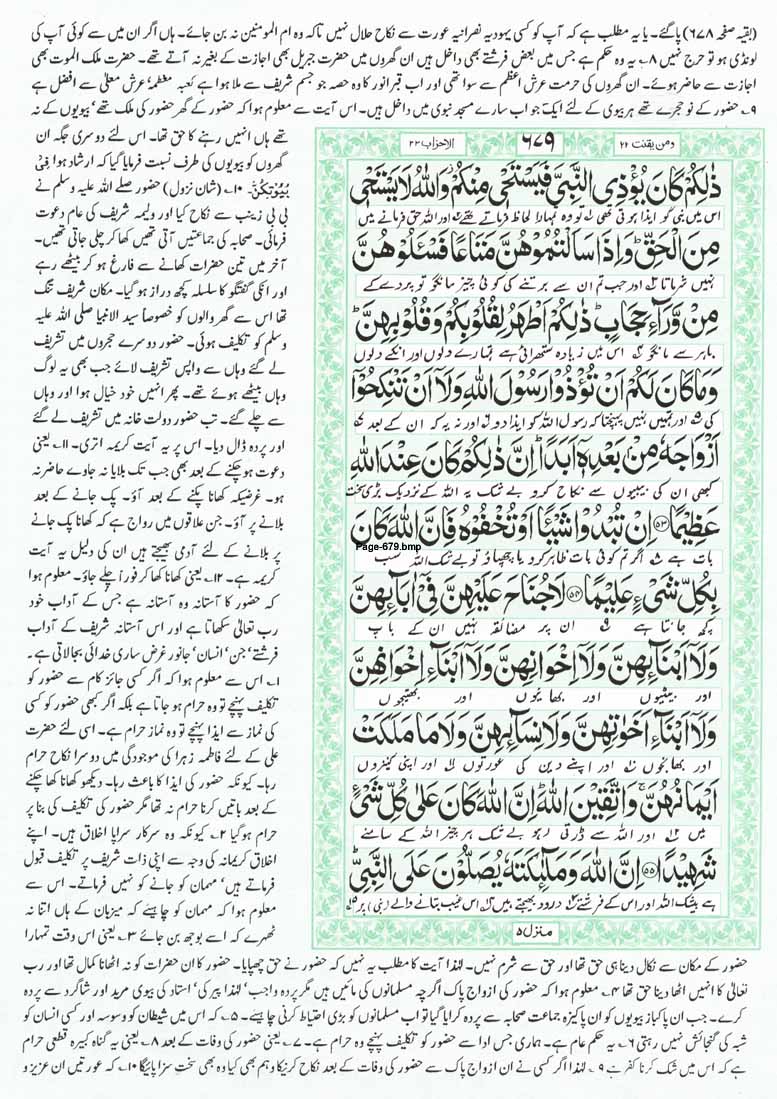 (بقیہ صفحہ ۶۷۸) پا گئے۔ یا یہ مطلب ہے کہ آپ کو کسی یہودیہ نصرانیہ عورت سے نکاح حلال نہیں تاکہ وہ ام المومنین نہ بن جائے۔ ہاں اگر ان میں سے کوئی آپ کی
لونڈی ہو تو حرج نہیں ۸۔ یہ وہ حکم ہے جس میں بعض فرشتے بھی داخل ہیں ان گھروں میں حضرت جبریل بھی اجازت کے بغیر نہ آتے تھے۔ حضرت ملک الموت بھی
اجازت سے حاضر ہوئے۔ ان گھروں کی حرمت عرش اعظم سے سوا تھی اور اب قبر انور کا وہ حصہ جو جسم شریف سے ملا ہوا ہے کعبہ معظمہ' عرش معلیٰ سے افضل ہے
۹۔ حضور کے نو حجرے تھے ہر بیوی کے لئے ایک جو اب سارے مسجد نبوی میں داخل ہیں۔ اس آیت سے معلوم ہوا کہ حضور کے گھر حضور کی ملک تھے' بیویوں کے نہ
ومن یقنت ۲۲
۶۷۹
الاحزاب ۳۳
ذٰلِكُمْ كَانَ يُؤْذِى النَّبِىَّ فَيَسْتَحْىٖ مِنْكُمْ وَاللّٰهُ لَا يَسْتَحْىٖ
اس میں نبی کو ایذا ہوتی تھی تو وہ تمہارا لحاظ فرماتے تھے اور اللہ حق فرمانے میں
مِنَ الْحَقِّ وَاِذَا سَاَلْتُمُوْهُنَّ مَتَاعًا فَسْـَٔلُوْهُنَّ
نہیں شرماتا اور جب تم ان سے برتنے کی کوئی چیز مانگو تو پردے کے
مِنْ وَّرَآءِ حِجَابٍ ذٰلِكُمْ اَطْهَرُ لِقُلُوْبِكُمْ وَقُلُوْبِهِنَّ
باہر سے مانگو اس میں زیادہ ستھرائی ہے تمہارے دلوں اور انکے دلوں
وَمَا كَانَ لَكُمْ اَنْ تُؤْذُوْا رَسُوْلَ اللّٰهِ وَلَآ اَنْ تَنْكِحُوْٓا
کی اور تمہیں نہیں پہنچتا کہ رسول اللہ کو ایذا دو اور نہ یہ کہ ان کے بعد
اَزْوَاجَهٗ مِنْۢ بَعْدِهٖٓ اَبَدًا اِنَّ ذٰلِكُمْ كَانَ عِنْدَ اللّٰهِ
کبھی ان کی بیبیوں سے نکاح کرو بے شک یہ اللہ کے نزدیک بڑی سخت
عَظِيْمًا ۵۳ اِنْ تُبْدُوْا شَيْـًٔا اَوْ تُخْفُوْهُ فَاِنَّ اللّٰهَ كَانَ
Page-679.bmp
بات ہے اگر تم کوئی بات ظاہر کرو یا چھپاؤ تو بے شک اللہ سب
بِكُلِّ شَىْءٍ عَلِيْمًا ۵۴ لَا جُنَاحَ عَلَيْهِنَّ فِىْٓ اٰبَآئِهِنَّ
کچھ جانتا ہے ان پر مضائقہ نہیں ان کے باپ
وَلَآ اَبْنَآئِهِنَّ وَلَآ اِخْوَانِهِنَّ وَلَآ اَبْنَآءِ اِخْوَانِهِنَّ
اور بیٹیوں اور بھائیوں اور بھتیجوں
وَلَآ اَبْنَآءِ اَخَوٰتِهِنَّ وَلَا نِسَآئِهِنَّ وَلَا مَا مَلَكَتْ
اور بھانجوں اور اپنے دین کی عورتوں اور اپنی کنیزوں
اَيْمَانُهُنَّ وَاتَّقِيْنَ اللّٰهَ اِنَّ اللّٰهَ كَانَ عَلٰى كُلِّ شَىْءٍ
میں اور اللہ سے ڈرتی رہو بے شک ہر چیز اللہ کے سامنے
شَهِيْدًا ۵۵ اِنَّ اللّٰهَ وَمَلٰٓئِكَتَهٗ يُصَلُّوْنَ عَلَى النَّبِىِّ
ہے بیشک اللہ اور اس کے فرشتے درود بھیجتے ہیں اس غیب بتانے والے (نبی) پر
منزل ۵
تھے ہاں انہیں رہنے کا حق تھا۔ اس لئے دوسری جگہ ان
گھروں کو بیویوں کی طرف نسبت فرمایا گیا کہ ارشاد ہوا فِیْ
بُیُوْتِکُنَّ ۱۰۔ (شان نزول) حضور صلے اللہ علیہ وسلم نے
بی بی زینب سے نکاح کیا اور ولیمہ شریف کی عام دعوت
فرمائی۔ صحابہ کی جماعتیں آتی تھیں کھا کر چلی جاتی تھیں۔
آخر میں تین حضرات کھانے سے فارغ ہو کر بیٹھے رہے
اور انکی گفتگو کا سلسلہ کچھ دراز ہو گیا۔ مکان شریف تنگ
تھا اس سے گھر والوں کو خصوصاً سید الانبیا صلی اللہ علیہ
وسلم کو تکلیف ہوئی۔ حضور دوسرے حجروں میں تشریف
لے گئے وہاں سے واپس تشریف لائے جب بھی یہ لوگ
وہاں بیٹھے ہوئے تھے۔ پھر انہیں خود خیال ہوا اور وہاں
سے چلے گئے۔ تب حضور دولت خانہ میں تشریف لے گئے
اور پردہ ڈال دیا۔ اس پر یہ آیت کریمہ اتری۔ ۱۱۔ یعنی
دعوت ہو چکنے کے بعد بھی جب تک بلایا نہ جاوے حاضر نہ
ہو۔ غرضیکہ کھانا پکنے کے بعد آؤ۔ پک جانے کے بعد
بلانے پر آؤ۔ جن علاقوں میں رواج ہے کہ کھانا پک جانے
پر بلانے کے لئے آدمی بھیجتے ہیں ان کی دلیل یہ آیت
کریمہ ہے۔ ۱۲۔ یعنی کھانا کھا کر فوراً چلے جاؤ۔ معلوم ہوا
کہ حضور کا آستانہ وہ آستانہ ہے جس کے آداب خود
رب تعالیٰ سکھاتا ہے اور اس آستانہ شریف کے آداب
فرشتے' جن' انسان' جانور غرض ساری خدائی بجا لاتی ہے۔
۱۔ اس سے معلوم ہوا کہ اگر کسی جائز کام سے حضور کو
تکلیف پہنچے تو وہ حرام ہو جاتا ہے بلکہ اگر کبھی حضور کو کسی
کی نماز سے ایذا پہنچے تو وہ نماز حرام ہے۔ اسی لئے حضرت
علی کے لئے فاطمہ زہرا کی موجودگی میں دوسرا نکاح حرام
رہا۔ کیونکہ حضور کی ایذا کا باعث رہا۔ دیکھو کھانا کھا چکنے
کے بعد باتیں کرنا حرام نہ تھا مگر حضور کی تکلیف کی بنا پر
حرام ہو گیا ۲۔ کیونکہ وہ سرکار سراپا اخلاق ہیں۔ اپنے
اخلاق کریمانہ کی وجہ سے اپنی ذات شریف پر تکلیف قبول
فرماتے ہیں' مہمان کو جانے کو نہیں فرماتے۔ اس سے
معلوم ہوا کہ مہمان کو چاہیئے کہ میزبان کے ہاں اتنا نہ
ٹھہرے کہ اسے بوجھ بن جائے ۳۔ یعنی اس وقت تمہارا
حضور کے مکان سے نکال دینا ہی حق تھا اور حق سے شرم نہیں۔ لہٰذا آیت کا مطلب یہ نہیں کہ حضور نے حق چھپایا۔ حضور کا ان حضرات کو نہ اٹھانا کمال تھا اور رب
تعالیٰ کا انہیں اٹھا دینا حق تھا ۴۔ معلوم ہوا کہ حضور کی ازواج پاک اگرچہ مسلمانوں کی مائیں ہیں مگر پردہ واجب' لہٰذا پیر کی' استاد کی بیوی مرید اور شاگرد سے پردہ
کرے۔ جب ان پاکباز بیویوں کو ان پاکیزہ جماعت صحابہ سے پردہ کرایا گیا تو اب مسلمانوں کو بڑی احتیاط کرنی چاہیئے۔ ۵۔ کہ اس میں شیطان کو وسوسہ اور کسی انسان کو
شبہ کی گنجائش نہیں رہتی ۶۔ یہ حکم عام ہے۔ ہماری جس ادا سے حضور کو تکلیف پہنچے وہ حرام ہے۔ ۷۔ یعنی حضور کی وفات کے بعد ۸۔ یعنی یہ گناہ کبیرہ قطعی حرام
ہے کہ اس میں شک کرنا کفر ہے ۹۔ لہٰذا اگر کسی نے ان ازواج پاک سے حضور کی وفات کے بعد نکاح کرنیکا وہم بھی کیا وہ بھی سخت سزا پائیگا ۱۰۔ کہ عورتیں ان عزیز و